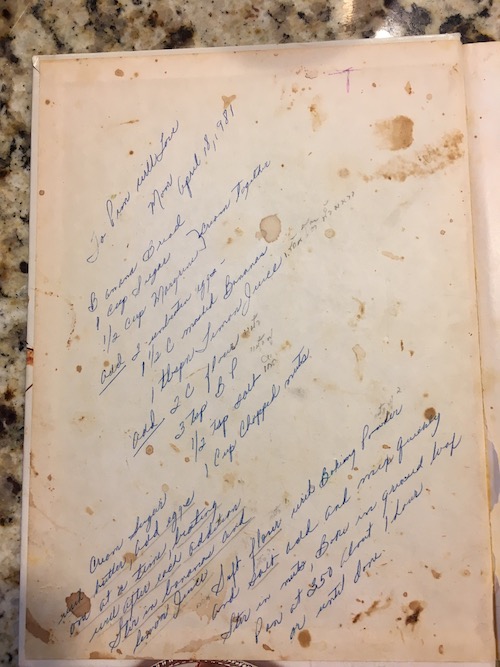 To Pam with Love
Mom April, 8, 1981
Banana Bread
1 Cup Sugar
1/2 Cup Margarine } Cream Together
add 2 - unbeaten eggs -
1 1/2 C mashed Bananas
1 tbspn Lemon Juice
add 2 C flour
3 tsp B P
1/2 tsp salt
1 Cup Chopped nuts.
Cream Sugar
with butter, add eggs
one at a time, beating
well after each addition
Stir in bananas and
Lemon Juice
Sift flour with Baking Powder
and Salt add and mix quickly
Stir in nuts, Bake in greased loaf
Pan at 350 about 1 hour.
or until done.